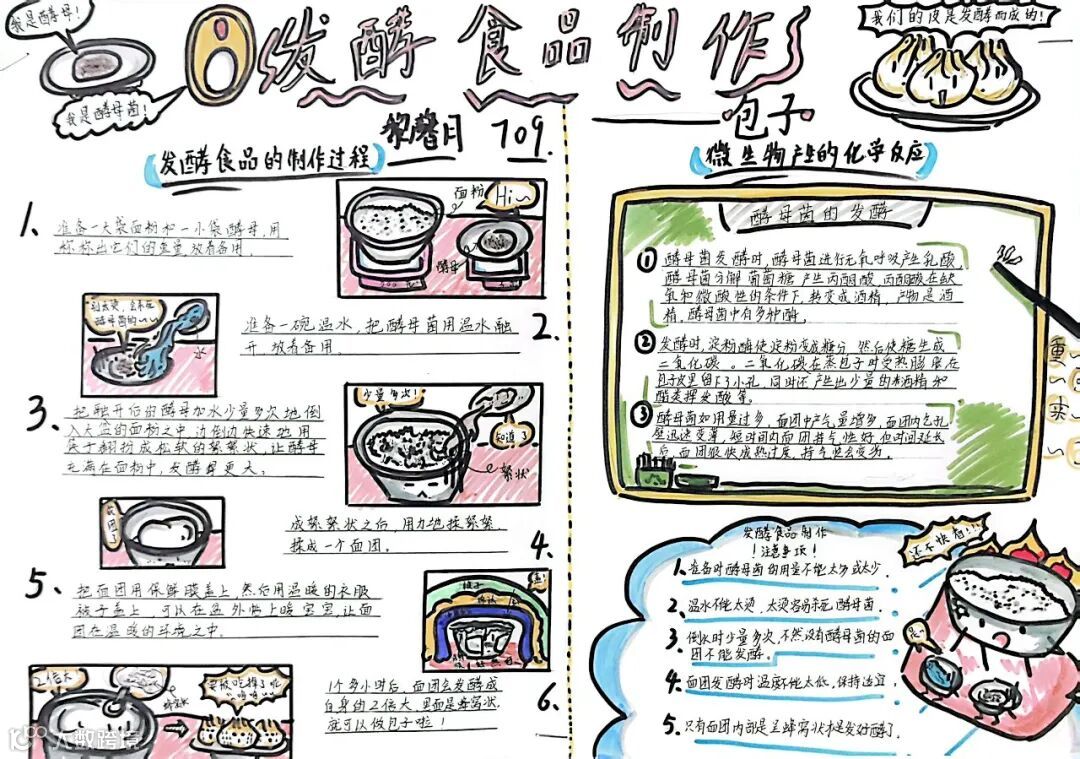 我是酵母!
我是酵母菌!
发酵食品制作
包子
我们的皮是发酵而成的!
黎馨月 709.
发酵食品的制作过程
1.
准备一大袋面粉和一小袋酵母,用
称称出它们的重量,放着备用.
面粉
Hi~
酵母
别太烫,会杀死
酵母菌的~~
水
准备一碗温水,把酵母菌用温水融
开,放着备用.
2.
3.
把融开后的酵母加水少量多次地倒
入大盆的面粉之中,边倒边快速地用
筷子翻拌成松软的絮絮状,让酵母
充满在面粉中,发酵得更大。
少量多次!
知道了
絮状
成絮絮状之后,用力地揉絮絮,
揉成一个面团。
4.
5.
把面团用保鲜膜盖上,然后用温暖的衣服
被子盖上,可以在盆外贴上暖宝宝,让面
团在温暖的环境之中.
被子
2倍大
蜂窝状
要被吃掉了呢
1个多小时后,面团会发酵成
自身的2倍大,里面是蜂窝状,
就可以做包子啦!
6.
微生物产生的化学反应
酵母菌的发酵
①酵母菌发酵时,酵母菌进行无氧呼吸产生乳酸,
酵母菌分解葡萄糖产生丙酮酸,丙酮酸在缺
氧和微酸性的条件下,转变成酒精,产物是酒
精,酵母菌中有多种酶.
②发酵时,淀粉酶使淀粉变成糖分,然后使糖生成
二氧化碳。二氧化碳在蒸包子时受热膨胀在
包子皮里留下了小孔,同时还产生出少量的酒精和
酯类挥发酸等。
③酵母菌如用量过多,面团中产气量增多,面团内包孔
壁迅速变薄,短时间内面团持气性好,但时间延长
后,面团很快成熟过度,持气性会变劣.
重
来
发酵食品制作
!注意事项!
1.准备时酵母菌的用量不能太多或太少.
2.温水不能太烫,太烫容易杀死酵母菌.
3.倒水时少量多次,不然没有酵母菌的面
团不能发酵。
4.面团发酵时温度不能太低,保持适宜.
5.只有面团内部是呈蜂窝状才是发好酵了.
还不快泡!!
大数跨境